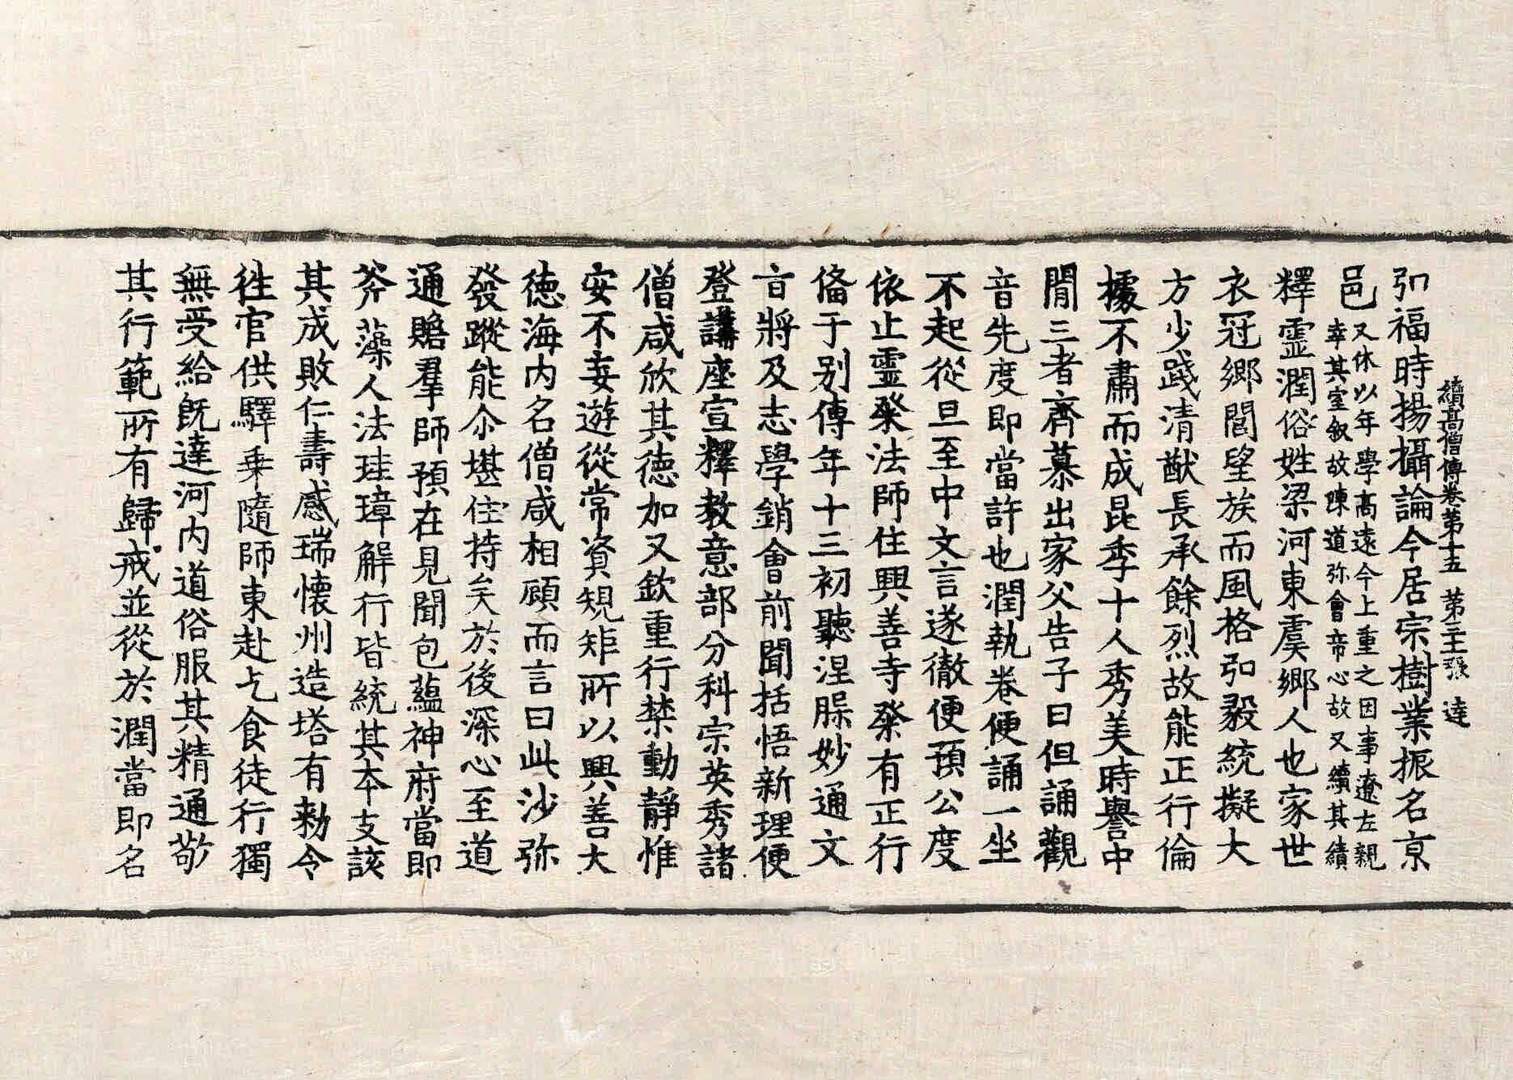 續高僧傳卷第十五 第二十三張 達
弘福時揚攝論今居宗樹業振名京
邑
又休以年學高遠今上重之因事遼左親
幸其室叙故陳道弥會帝心故又續其績
釋靈潤俗姓梁河東虞鄉人也家世
衣冠鄉閭望族而風格弘毅統擬大
方少踐清猷長承餘烈故能正行倫
據不肅而成昆季十人秀美時譽中
閒三者齊慕出家父告子曰但誦觀
音先度即當許也潤執卷便誦一坐
不起從旦至中文言遂徹便預公度
依止靈粲法師住興善寺粲有正行
俻于別傳年十三初聽涅槃妙通文
旨將及志學銷會前聞括悟新理便
登講座宣釋教意部分科宗英秀諸
僧咸欣其德加又欽重行禁動靜惟
安不妄遊從常資規矩所以興善大
德海内名僧咸相顧而言曰此沙弥
發蹤能尒堪住持矣於後深心至道
通贍羣師預在見聞包蘊神府當即
芥藻人法珪璋解行皆統其本支該
其成敗仁壽感瑞懷州造塔有勑令
往官供驛乘隨師東赴乞食徒行獨
無受給旣達河内道俗服其精通敬
其行範所有歸戒並從於潤當即名